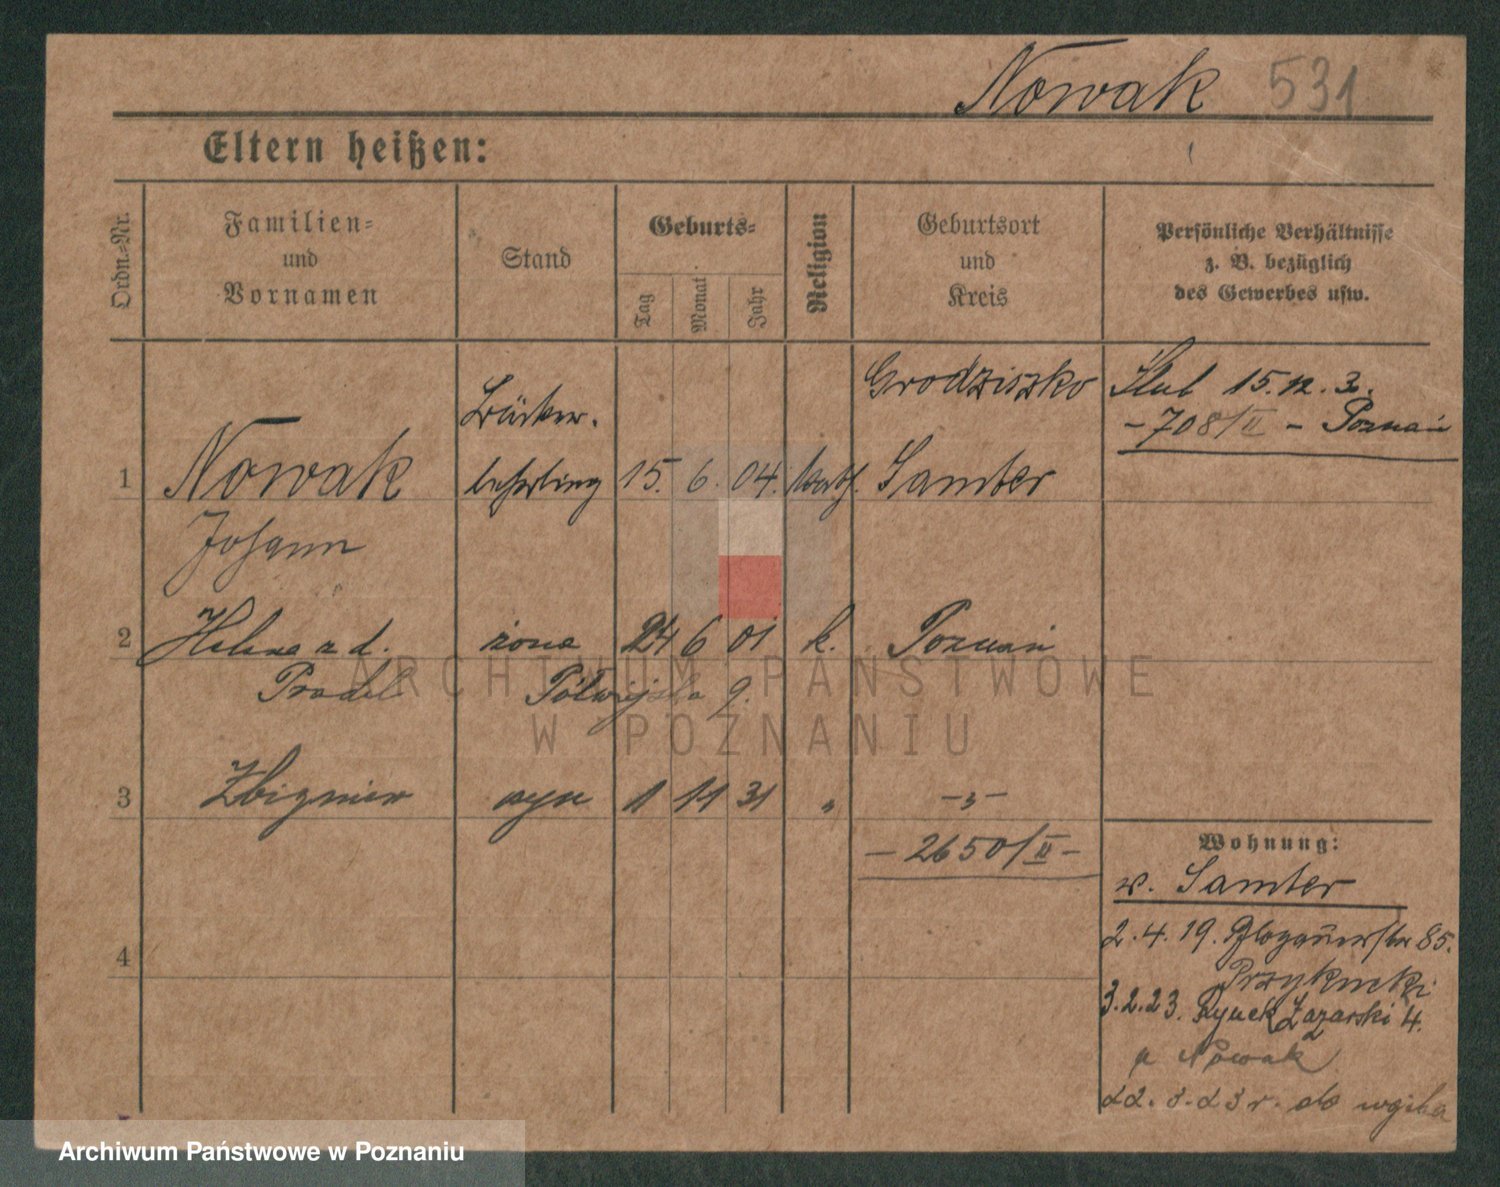 Nowak 531
Eltern heißen:
Ordn.-Nr.
Familien-
und
Vornamen
Stand
Geburts-
Tag
Monat
Jahr
Religion
Geburtsort
und
Kreis
Persönliche Verhältnisse
z. B. bezüglich
des Gewerbes usw.
1
Nowak
Johann
Bäcker-
lehrling
15. 6. 04. kath.
Grodziszko
Samter
Ślub 15.12.
- 708/II - Poznań
2
Helena z d.
Pradel
żona 24 6 01 k. Poznań
Półwiejska 9.
3 Zbigniew syn 1 11 31 " -"-
- 2650/II -
4
Wohnung:
v. Samter
2.4.19. Glogauerstr 85.
3.2.23. Rynek Łazarski 4.
p Nowak
22.3.23 r. do
ARCHIWUM PAŃSTWOWE
W POZNANIU
Archiwum Państwowe w Poznaniu